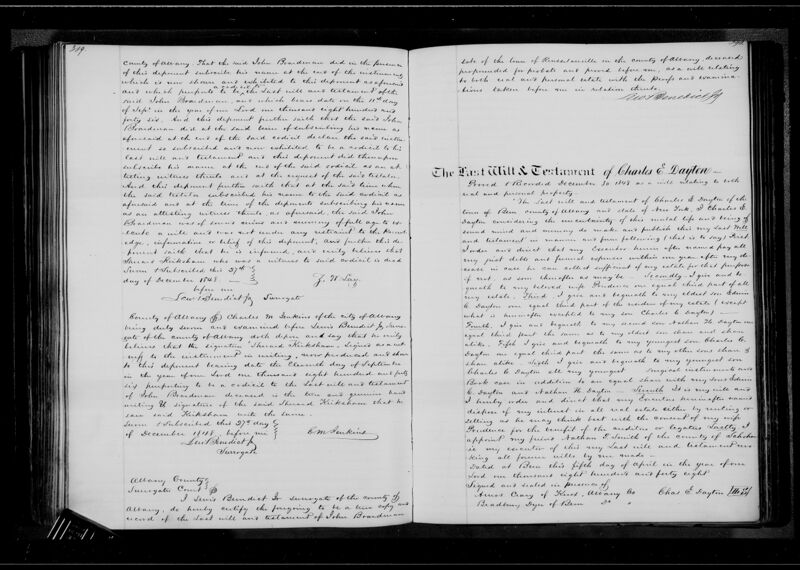 349
county of Albany. That the said John Boardman did in the presence
of this deponent subscribe his name at the end of the instrument
which is now shown and exhibited to this deponent as aforesaid
and which purports to be a codicil to the last will and testament of the
said John Boardman and which bears date on the 11th day
of Septr in the year of our Lord one thousand eight hundred and
forty six. And this deponent further saith that the said John
Boardman did at the said time of subscribing his name as
aforesaid at the end of the said codicil declare the said instru-
ment so subscribed and now exhibited to be a codicil to his
last will and testament and this deponent did thereupon
subscribe his name at the end of the said codicil as an at
testing witness thereto and at the request of the said testator.
And this deponent further saith that at the said time when
the said testator subscribed his name to the said codicil as
aforesaid and at the time of the deponents subscribing his name
as an attesting witness thereto as aforesaid, the said John
Boardman was of sound mind and memory of full age to ex-
ecute a will and was not under any restraint to the knowl
edge, information or belief of this deponent, and further this de-
ponent saith that he is informed and verily believes that
who was a witness to said codicil is dead
Sworn & Subscribed this 27th
day of December 1848
before me
Lewis Benedict Jr Surrogate
County of Albany ss Charles M Jenkins of the city of Albany
being duly sworn and examined before Lewis Benedict Jr Surro-
gate of the county of Albany doth depose and say that he verily
believes that the signature signed as a wit-
ness to the instrument in writing, now produced and shown
to this deponent bearing date the Eleventh day of September
in the year of our Lord one thousand eight hundred and forty
six purporting to be a codicil to the Last will and testament
of John Boardman deceased is the true and genuine hand
writing & signature of the said that he
saw said with the same.
Sworn & Subscribed this 27th day
of December 1848. before me
C M Jenkins
Lewis Benedict Jr
Surrogate
Albany County
Surrogate Court ss
I Lewis Benedict Jr Surrogate of the county of
Albany, do hereby certify the foregoing to be a true copy and
record of the Last will and testament of John Boardman
late of the town of Rensselaerville in the county of Albany, deceased
propounded for probate and proved before me, as a will relating
to both real and personal estate with the proofs and examina-
tions taken before me in relation thereto.
Lewis Benedict Jr
The Last Will & Testament of Charles E Dayton
Proved & Recorded December 30 1848 as a will relating to both
real and personal property
The Last will and testament of Charles E Dayton of the
town of Bern county of Albany and state of New York. I Charles E.
Dayton considering the uncertainty of this mortal life and being of
sound mind and memory do make and publish this my last Will
and testament in manner and form following (that is to say) First,
I order and direct that my Executor herein after named pay all
my just debts and funeral expenses within one year after my de-
cease in case he can collect sufficient of my estate for that purpose
if not, as soon thereafter as may be Secondly I give and be
queath to my beloved wife Prudence one equal third part of all
my estate. Third. I give and bequeath to my eldest son Edwin
C Dayton one equal third part the residue of my estate (except
what is hereinafter excepted to my son Charles C Dayton)
Fourth, I give and bequeath to my second son Nathan H. Dayton one
equal third part the same as to my eldest son share and share
alike. Fifth I give and bequeath to my youngest son Charles C.
Dayton one equal third part the same as to my other sons share &
share alike Sixth I give and bequeath to my youngest son
Charles C. Dayton all my Surgical instruments and
Book case in addition to an equal share with my sons Edwin
C. Dayton and Nathan H. Dayton Seventh It is my will and
I hereby order and direct that my Executor hereinafter named
dispose of my interest in all real estate either by renting or
selling as he may think best with the consent of my wife
Prudence for the benefit of the creditors or legatees Lastly I
appoint my friend Nathan T. Smith of the county of Schoharie
as my executor of this my last will and testament revo
king all former wills by me made
Dated at Bern this fifth day of April in the year of our
Lord one thousand eight hundred and forty eight
Signed and sealed in presence of
Amos Crary of Knox, Albany Co
Chas E Dayton
Bradbury Dyer of Bern Do "